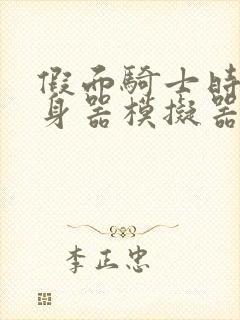 假面騎士時
身器模擬器
李正忠